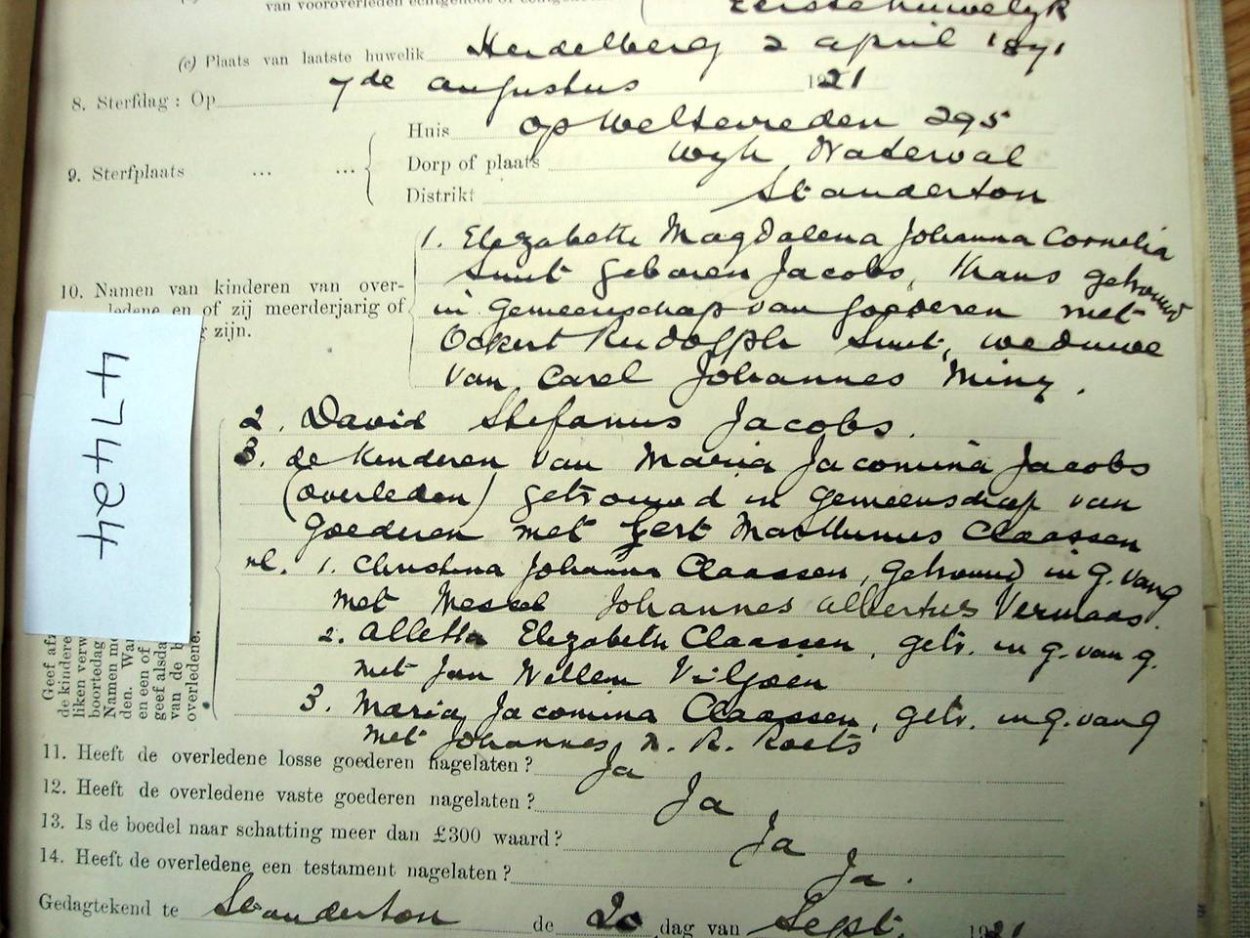 van vooroverleden echtgenoot of
Eerste huwelijk
(c) Plaats van laatste huwelik Heidelberg 2 april 1871
8. Sterfdag: Op 7de augustus 1921
9. Sterfplaats ... ...
Huis op Weltevreden 295
Dorp of plaats wyk Waterval
Distrikt Standerton
10. Namen van kinderen van over-
ledene en of zij meerderjarig of
zijn.
1. Elizabeth Magdalena Johanna Cornelia
Smit geboren Jacobs, thans getrouwd
in gemeenschap van goederen met
Ockert Rudolph Smit, weduwe
van Carel Johannes Miny.
2. David Stefanus Jacobs.
3. de kinderen van Maria Jacomina Jacobs
(overleden) getrouwd in gemeenschap van
goederen met Gert Marthinus Claassen
nl. 1. Christina Johanna Claassen, getrouwd in g. van g
met Johannes Albertus Vermaas.
2. Alletta Elizabeth Claassen, getr. in g. van g.
met Jan Willem Viljoen
3. Maria Jacomina Claassen, getr. in g. van g
met Johannes N. R. Roets
47424
Geef
de kindere
liken verw
boortedag
Namen
den. Wa
en een of
geef alsda
van de
overledene.
11. Heeft de overledene losse goederen nagelaten? Ja
12. Heeft de overledene vaste goederen nagelaten? Ja
13. Is de boedel naar schatting meer dan £300 waard? Ja
14. Heeft de overledene een testament nagelaten? Ja.
Gedagtekend te Standerton de 20 dag van Sept. 1921